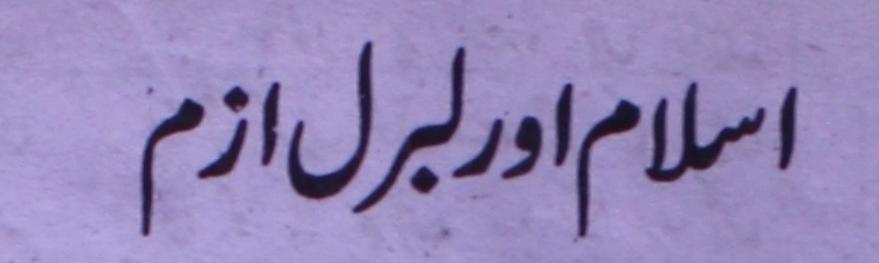 اسلام اور لبرل ازم